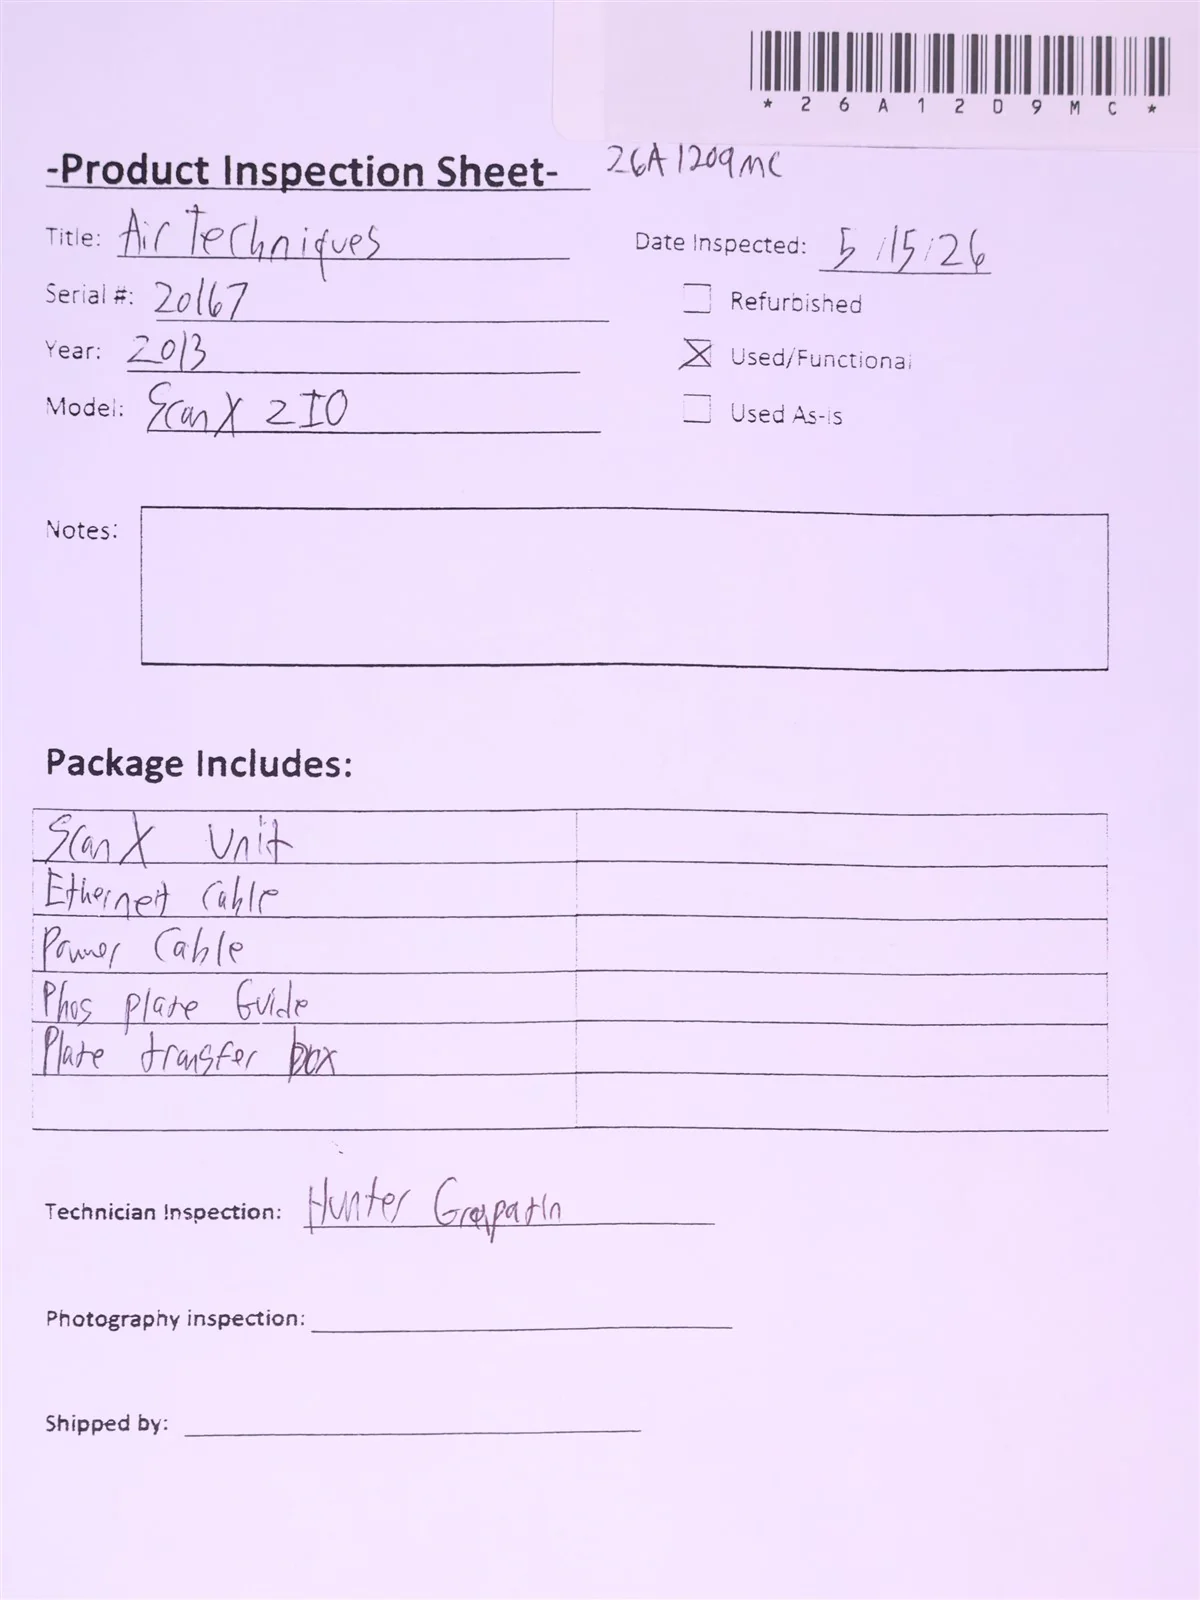 *26A12D9MC*
-Product Inspection Sheet- 26A1209MC
Title: Air Techniques
Date Inspected: 5/15/26
Serial #: 20167
Refurbished
Year: 2013
Used/Functional
Model: ScanX 2IO
Used As-is
Notes:
Package Includes:
ScanX Unit
Ethernet Cable
Power Cable
Phos plate Guide
Plate transfer box
Technician Inspection: Hunter
Photography inspection:
Shipped by: